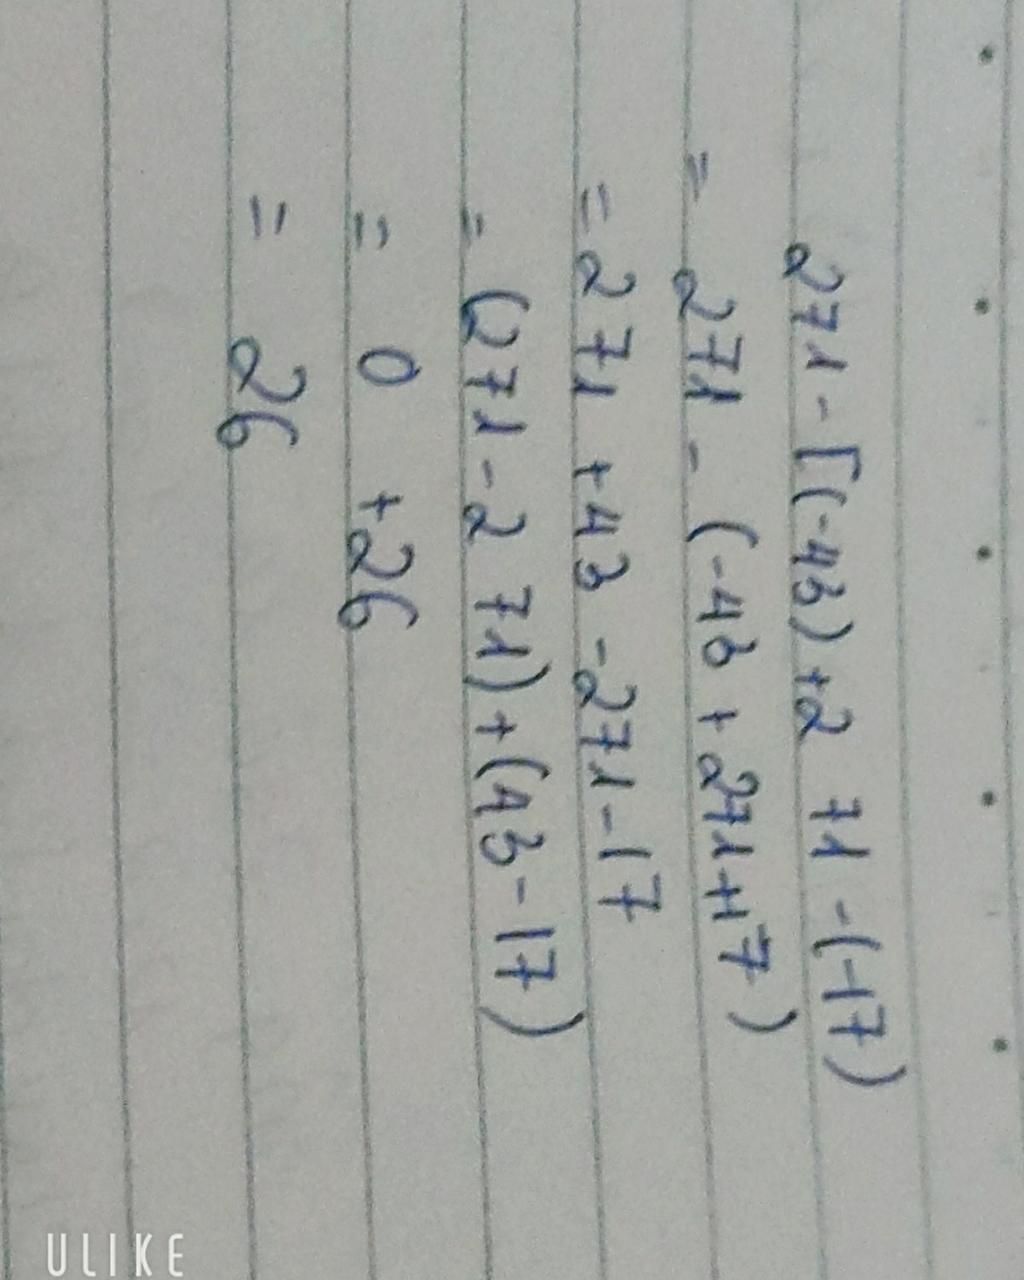 271 - [(-43) +271 -(-17)
= 271 - (-43 + 271+17)
= 271 +43 -271-17
= (271-271)+(43-17)
= 0 +26
= 26
ULIKE